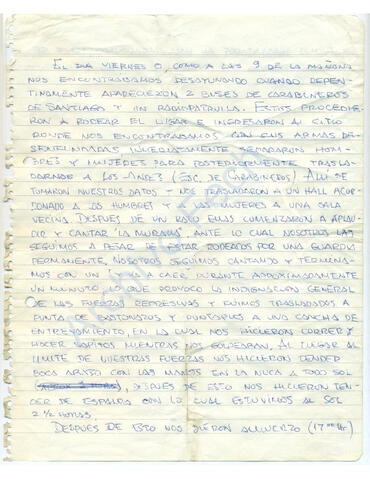 EL DIA VIERNES 8, COMO A LAS 9 DE LA MAÑANA
NOS ENCONTRABAMOS DESAYUNANDO CUANDO REPEN-
TINAMENTE APARECIERON 2 BUSES DE CARABINEROS
DE SANTIAGO Y UN RADIOPATRULLA. ESTOS PROCEDIE-
RON A RODEAR EL LUGAR E INGRESARON AL SITIO
DONDE NOS ENCONTRABAMOS CON SUS ARMAS DE-
SENFUNDADAS INMEDIATAMENTE SEPARARON HOM-
BRES Y MUJERES PARA POSTERIORMENTE TRASLA-
DARNOS A LOS ANDES (ESC. DE CARABINEROS) ALLI SE
TOMARON NUESTROS DATOS Y NOS TRASLADARON A UN HALL ACOR-
DONADO A LOS HOMBRES Y LAS MUJERES A UNA SALA
VECINA DESPUES DE UN RATO ELLAS COMENZARON A APLAU-
DIR Y CANTAR "LA MURALLA", ANTE LO CUAL NOSOTROS LAS
SEGUIMOS A PESAR DE ESTAR RODEADOS POR UNA GUARDIA
PERMANENTE, NOSOTROS SEGUIMOS CANTANDO Y TERMINA-
MOS CON UN A CAER, DURANTE APROXIMADAMENTE
UN MINUTO QUE PROVOCO LA INDIGNACION GENERAL
DE LAS FUERZAS REPRESIVAS Y FUIMOS TRASLADADOS A
PUNTA DE BASTONAZOS Y PUNTAPIES A UNA CANCHA DE
ENTRENAMIENTO, EN LA CUAL NOS HICIERON CORRER Y
HACER SAPITOS MIENTRAS NOS GOLPEABAN. AL LLEGAR AL
LIMITE DE NUESTRAS FUERZAS NOS HICIERON TENDER
BOCA ABAJO CON LAS MANOS EN LA NUCA A TODO SOL
, DESPUES DE ESTO NOS HICIERON TEN-
DER DE ESPALDA CON LO CUAL ESTUVIMOS AL SOL
2 1/2 HORAS.
DESPUES DE ESTO NOS DIERON ALMUERZO (17